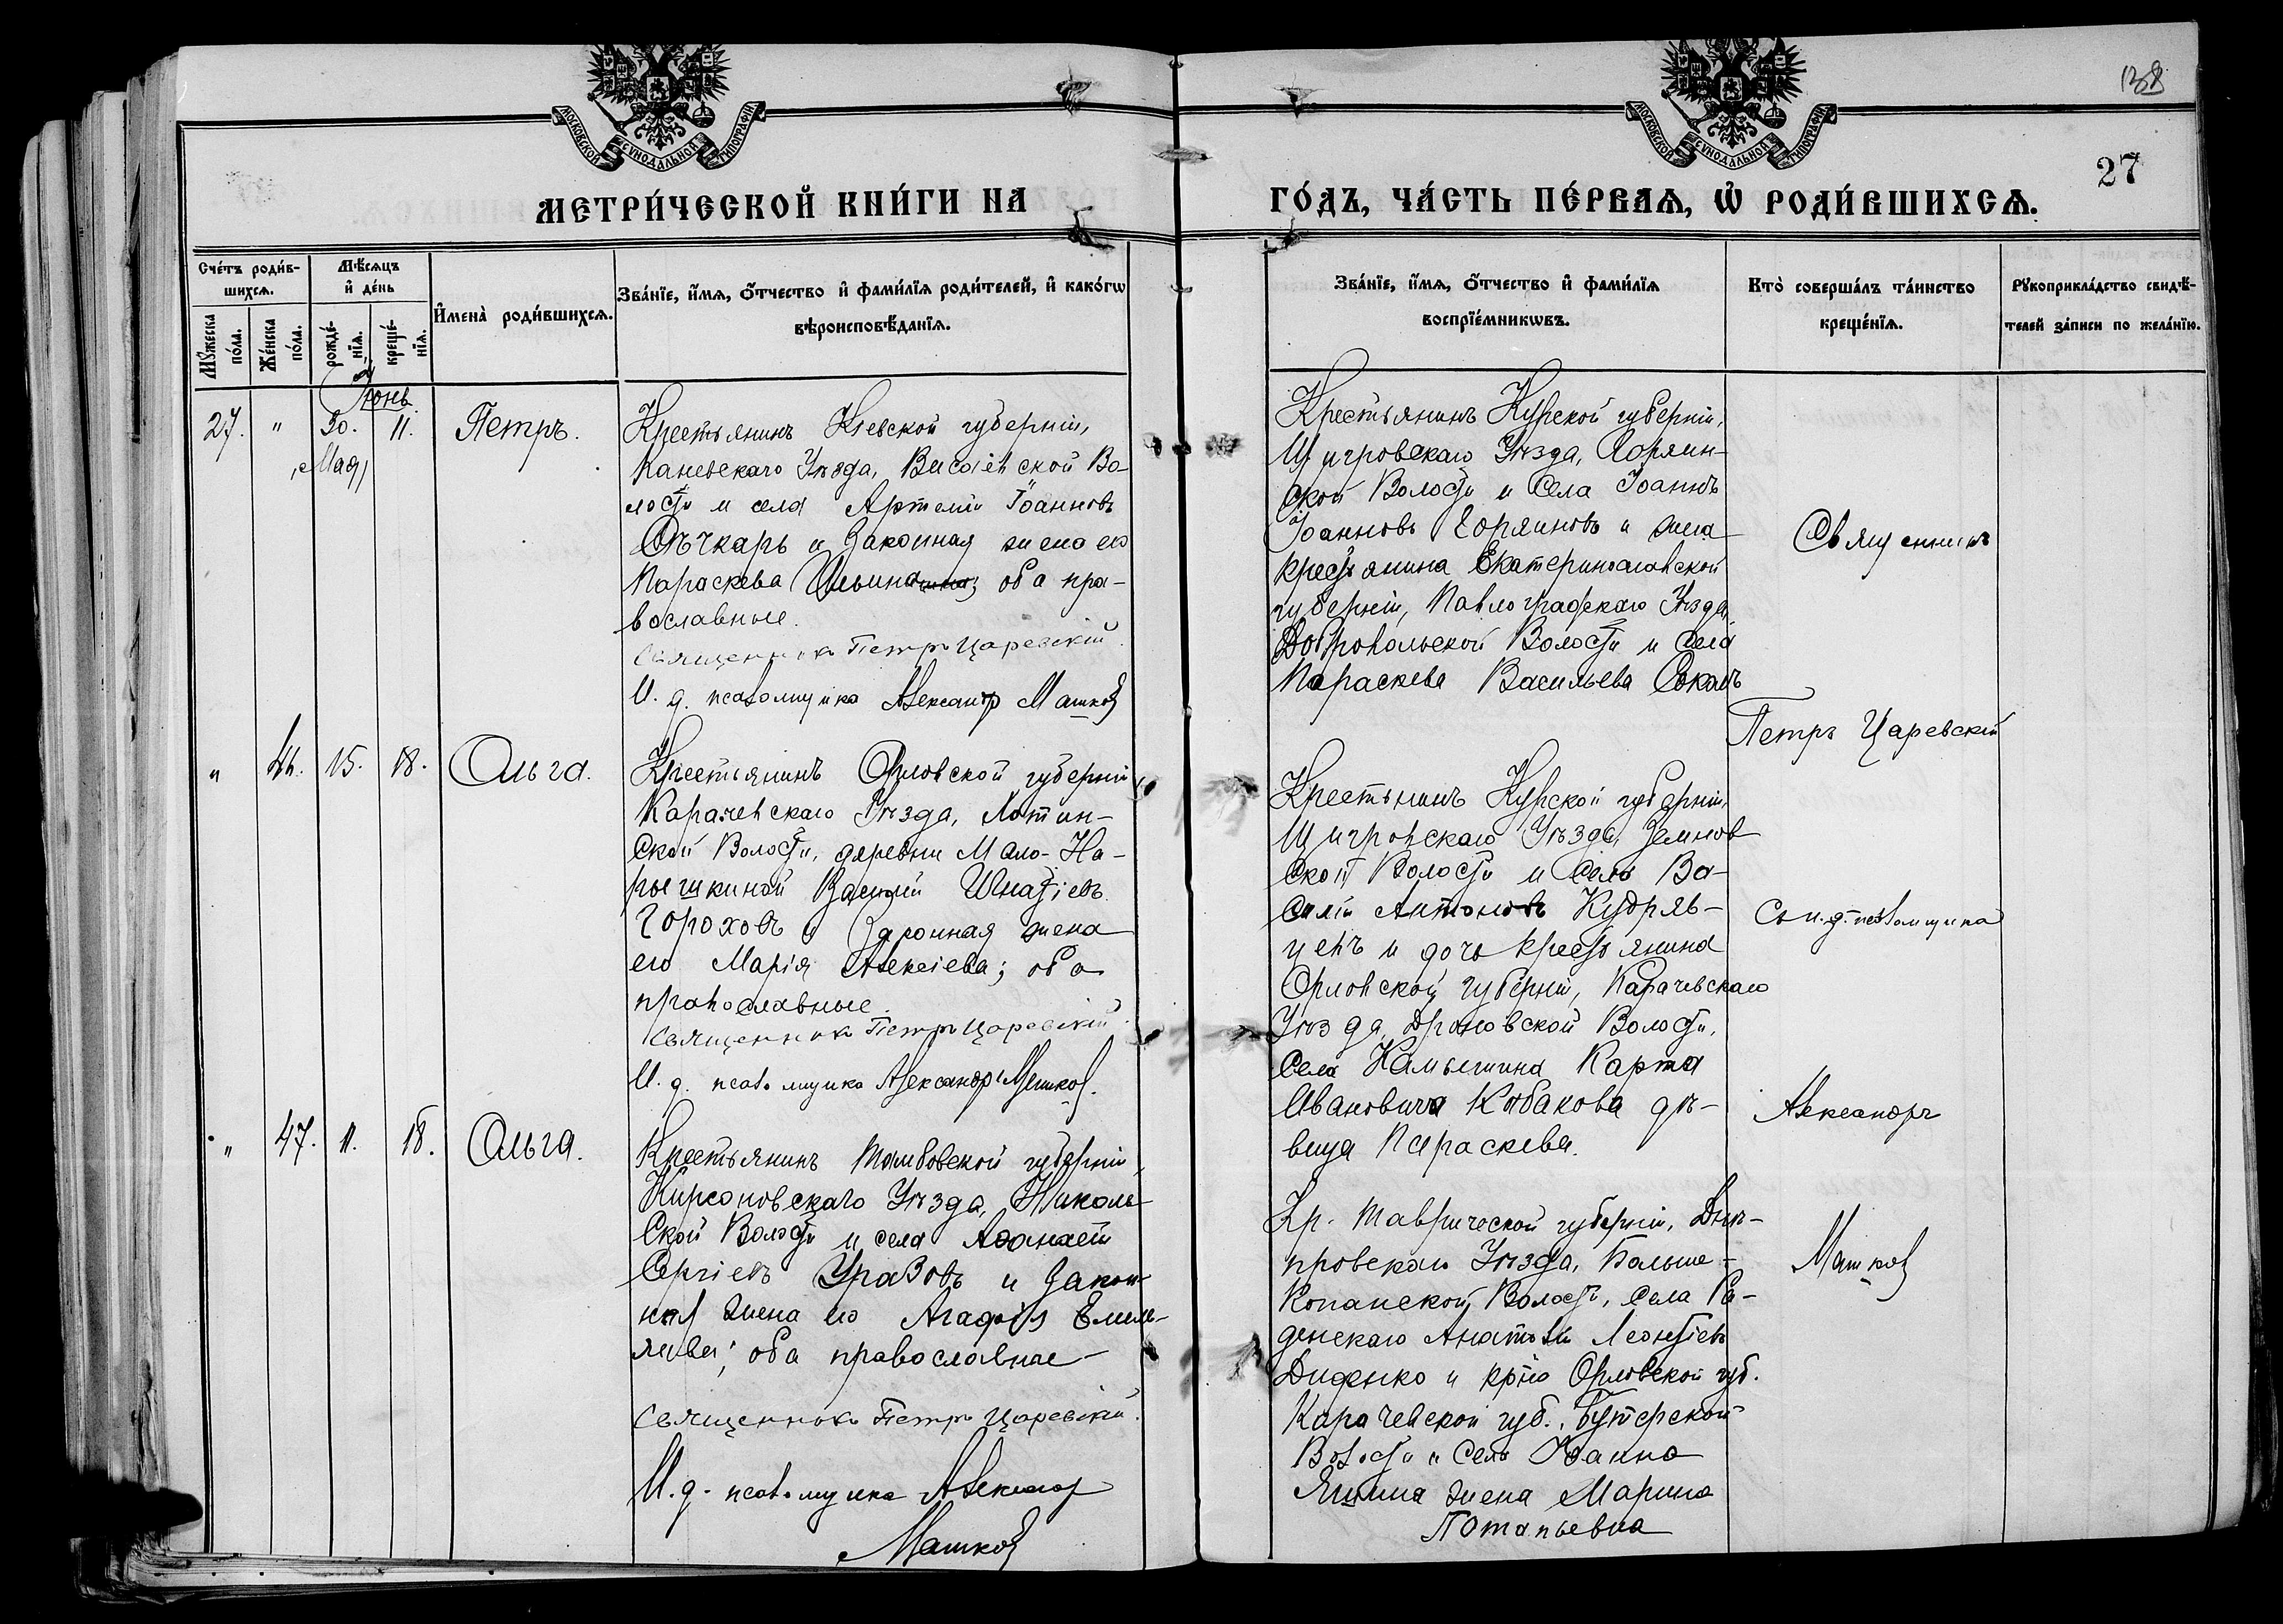 138
27
МОСКОВСКОЙ СѴНОДАЛЬНОЙ ТИПОГРАФІИ
МОСКОВСКОЙ СѴНОДАЛЬНОЙ ТИПОГРАФІИ
МЕТРИ́ЧЕСКОЙ КНИ́ГИ НА
ГО́ДЪ, ЧА́СТЬ ПЕ́РВАѦ, Ѿ РОДИ́ВШИХСѦ.
Сче́тъ роди́в-
шихсѧ.
Мꙋ́жеска
по́ла.
Же́нска
по́ла.
Мѣ́сѧцъ
и҆ де́нь
рожде́-
нїѧ.
креще́-
нїѧ.
И҆мена̀ роди́вшихсѧ.
Зва́нїе, и҆́мѧ, ѻ҆́тчество и҆ фами́лїѧ роди́телей, и҆ како́гѡ
вѣроисповѣ́данїѧ.
Зва́нїе, и҆́мѧ, ѻ҆́тчество и҆ фами́лїѧ
воспрїе́мникѡвъ.
Кто̀ соверша́лъ та́инство
креще́нїѧ.
Рꙋкоприкла́дство свидѣ́-
телей за́писи по жела́нїю.
Іюнь
27. " 30. 11. Петръ.
Мая
Крестьянинъ Кіевской губерніи,
Каневскаго Уѣзда, Во-
лости и села Артемій Іоанновъ
Сѣчкарь и законная жена его
Параскева Ильина; оба пра-
вославные.
Священникъ Петръ Царевскій.
И. д. псаломщика Александр Машков
Крестьянинъ Курской губерніи,
Щигровскаго Уѣзда, Горяин-
ской Волости и Села Іоаннъ
Іоанновъ Горяиновъ и жена
крестьянина Екатеринославской
губерніи, Павлоградскаго Уѣзда,
Добропольской Волости и Села
Параскева Васильева
Священникъ
Петръ Царевскій
" 15. 18. Ольга.
Крестьянинъ Орловской губерніи
Карачевскаго Уѣзда,
ской Волости, деревни Мало-На-
рышкиной Василій Игнатіевъ
Гороховъ и Законная жена
его Марія Алексіева; оба
православные.
Священникъ Петръ Царевскій
И. д. псаломщика Александръ Машков.
Крестьянинъ Курской губерніи,
Щигровскаго Уѣзда,
ской Волости и Села Ва-
силій Антоновъ Кудряв-
цевъ и дочь крестьянина
Орловской губерніи, Карачевскаго
Уѣзда, Дроновской Волости,
Села Карпа
Ивановича дѣ-
вица Параскева.
Съ и. д. псаломщика
Александръ
Машков
" 47. 11. 18. Ольга.
Крестьянинъ Тамбовской губерніи,
Кирсановскаго Уѣзда, Николь-
ской Волости и села Аѳанасій
Сергіевъ Уразовъ и Закон-
ная жена его Агафія Емель-
янова; оба православные
Священникъ Петръ Царевскій.
И. д. псаломщика Александр
Машков
Кр. Таврической губерніи, Днѣ-
провскаго Уѣзда, Больше-
Копанской Волости, Села Ра-
денскаго Анатолій Леонтіевъ
Диденко и Орловской губ.
Карачевской губ.,
Волости и Села Іоанна
Яшина жена Марина
Потапьевна